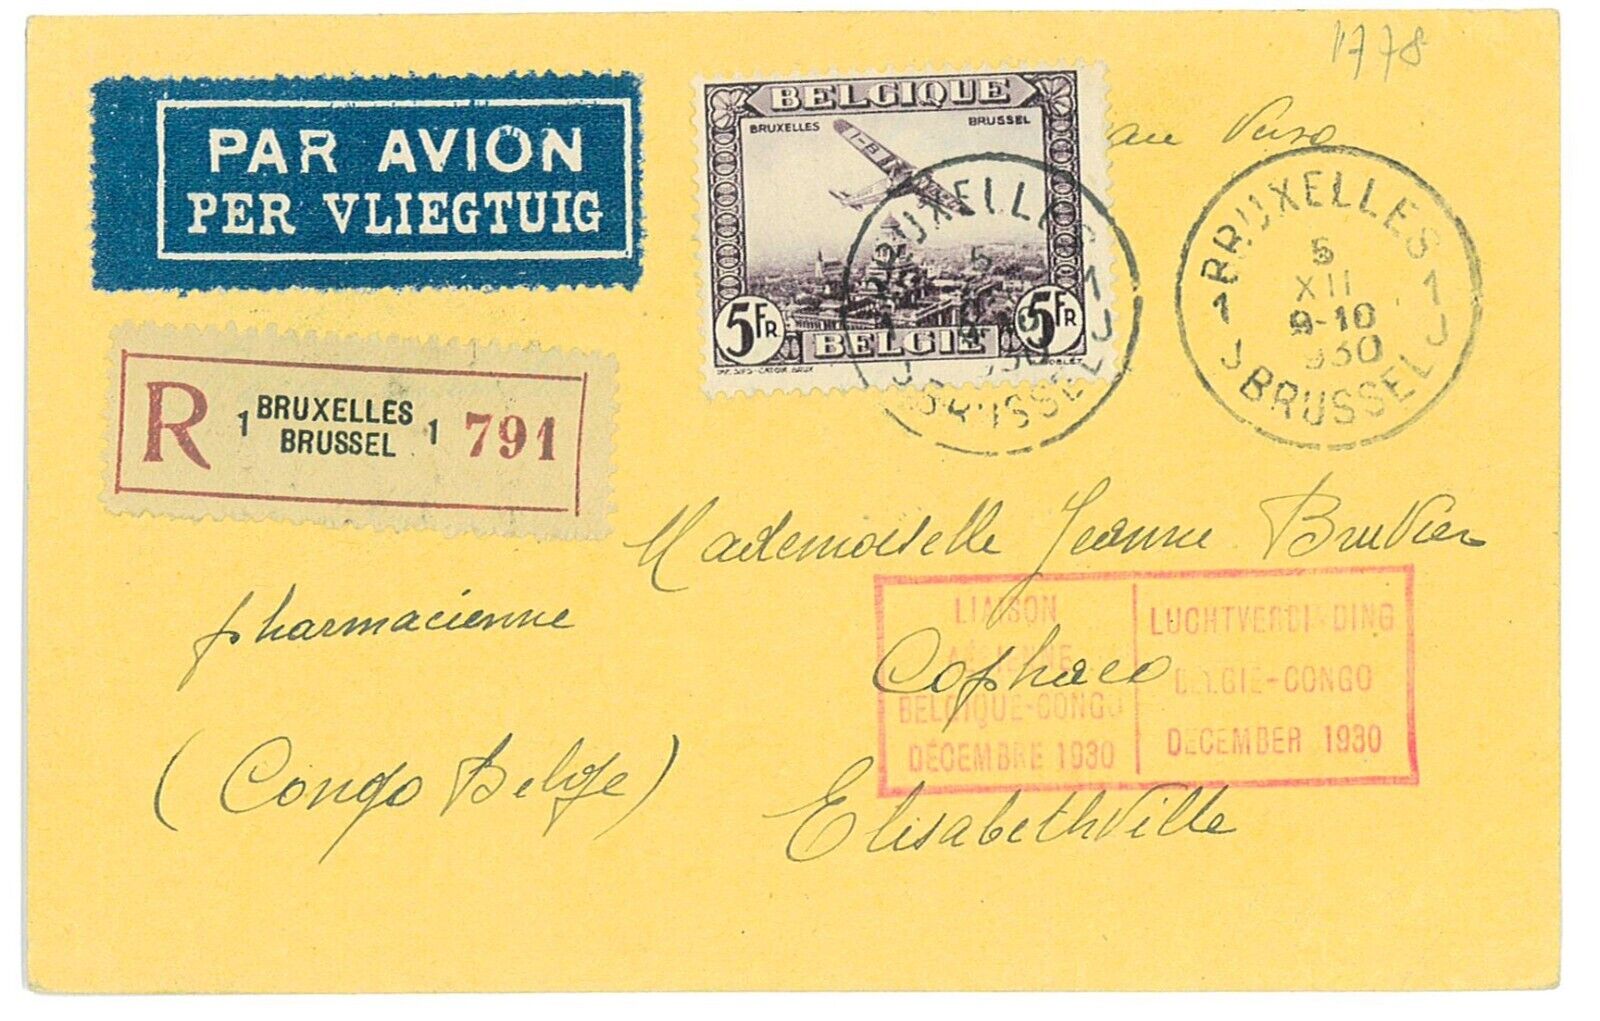 1778
PAR AVION
PER VLIEGTUIG
BELGIQUE
BRUXELLES BRUSSEL
5 FR 5 FR
BELGIË
au Verso
BRUXELLES
1 1
5
XII
9-10
930
J J
BRUSSEL
BRUXELLES
5
1 1
930
J J
BRUSSEL
R 1 BRUXELLES 1 791
BRUSSEL
Mademoiselle Jeanne
pharmacienne
Cophaco
(Congo Belge)
Elisabethville
LIAISON
AÉRIENNE
BELGIQUE-CONGO
DÉCEMBRE 1930
LUCHTVERBINDING
BELGIE-CONGO
DECEMBER 1930